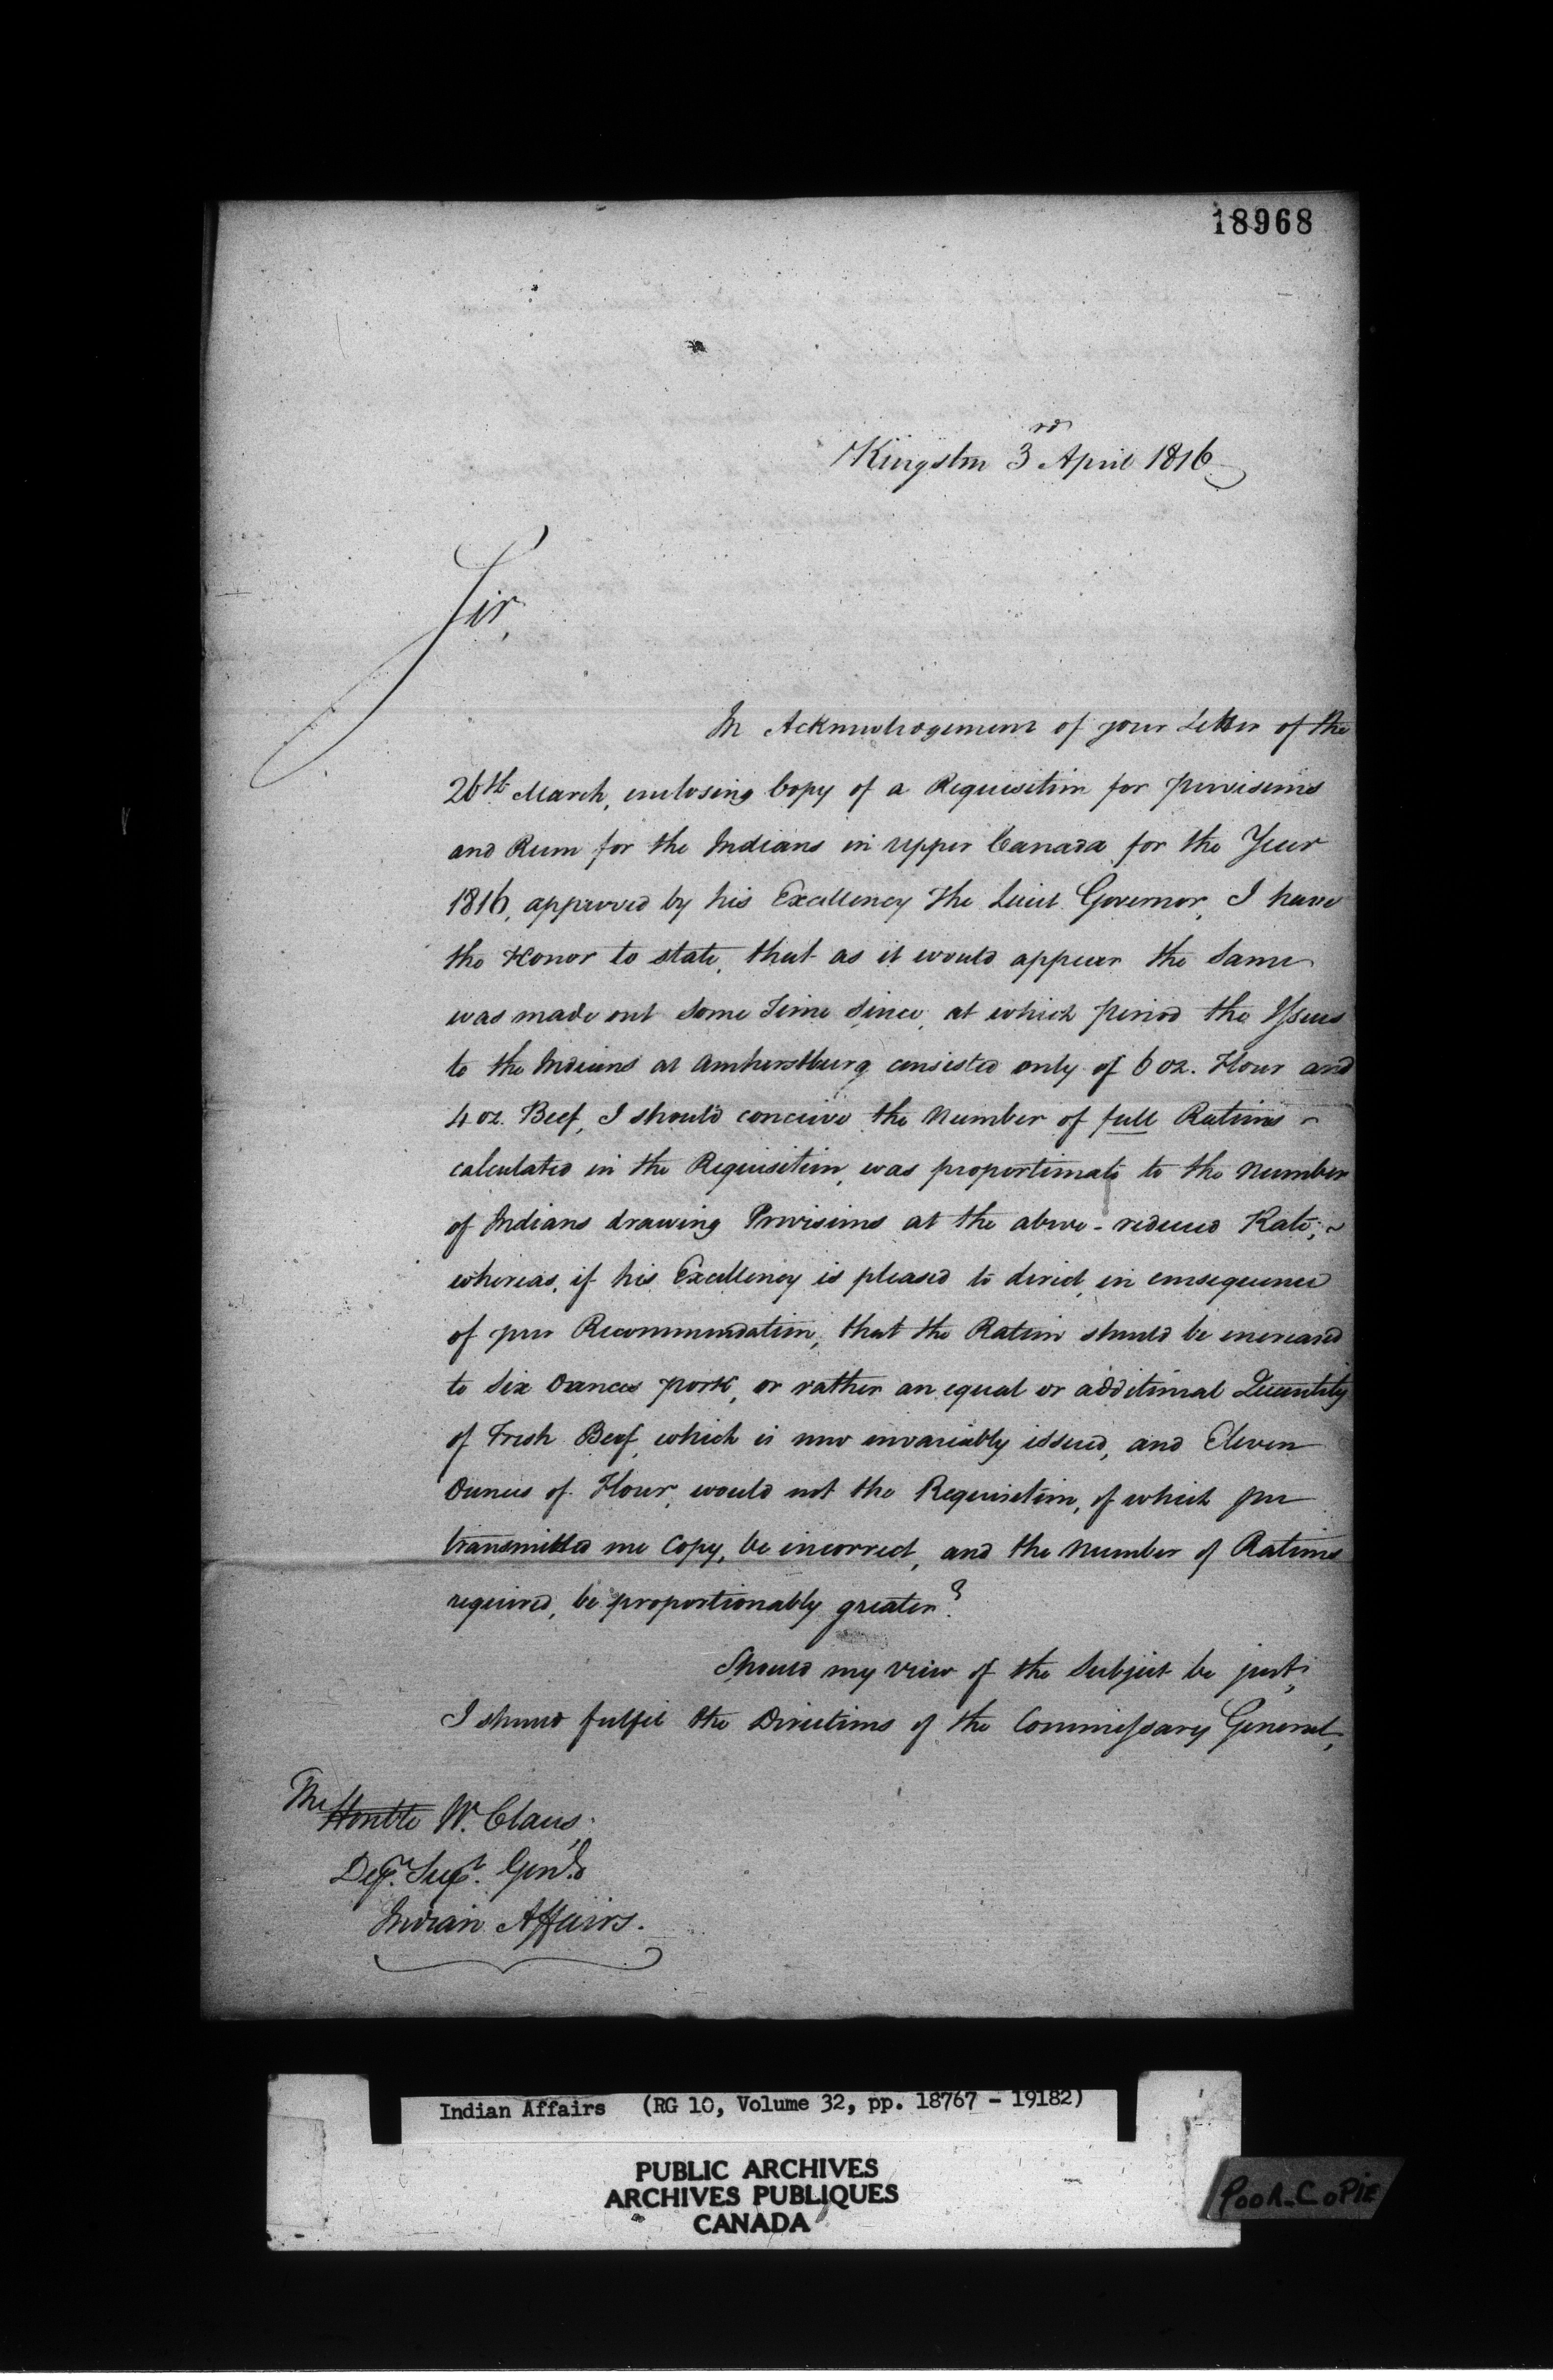 18968
Kingston 3rd April 1816
Sir,
In Acknowledgement of your Letter of the
26th March, enclosing Copy of a Requisition for Provisions
and Rum for the Indians in Upper Canada for the Year
1816, approved by his Excellency the Lieut Governor, I have
the Honor to state, that as it would appear the same
was made out some Time since, at which period the Issues
to the Indians at Amherstburg consisted only of 6 oz. Flour and
4 oz. Beef, I should conceive the Number of full Rations
calculated in the Requisition, was proportionate to the Number
of Indians drawing Provisions at the above-reduced Rate;
whereas, if his Excellency is pleased to direct, in consequence
of your Recommendation, that the Ration should be increased
to Six Ounces pork, or rather an equal or additional Quantity
of Fresh Beef, which is now invariably issued, and Eleven
Ounces of Flour, would not the Requisition, of which you
transmitted me Copy, be incorrect, and the Number of Rations
required, be proportionably greater?
Should my view of the Subject be just,
I should fulfil the Directions of the Commissary General,
The Honble W. Claus,
Depy. Supt. Genl.
Indian Affairs.
Indian Affairs (RG 10, Volume 32, pp. 18767 - 19182)
PUBLIC ARCHIVES
ARCHIVES PUBLIQUES
CANADA
POOR-COPIE